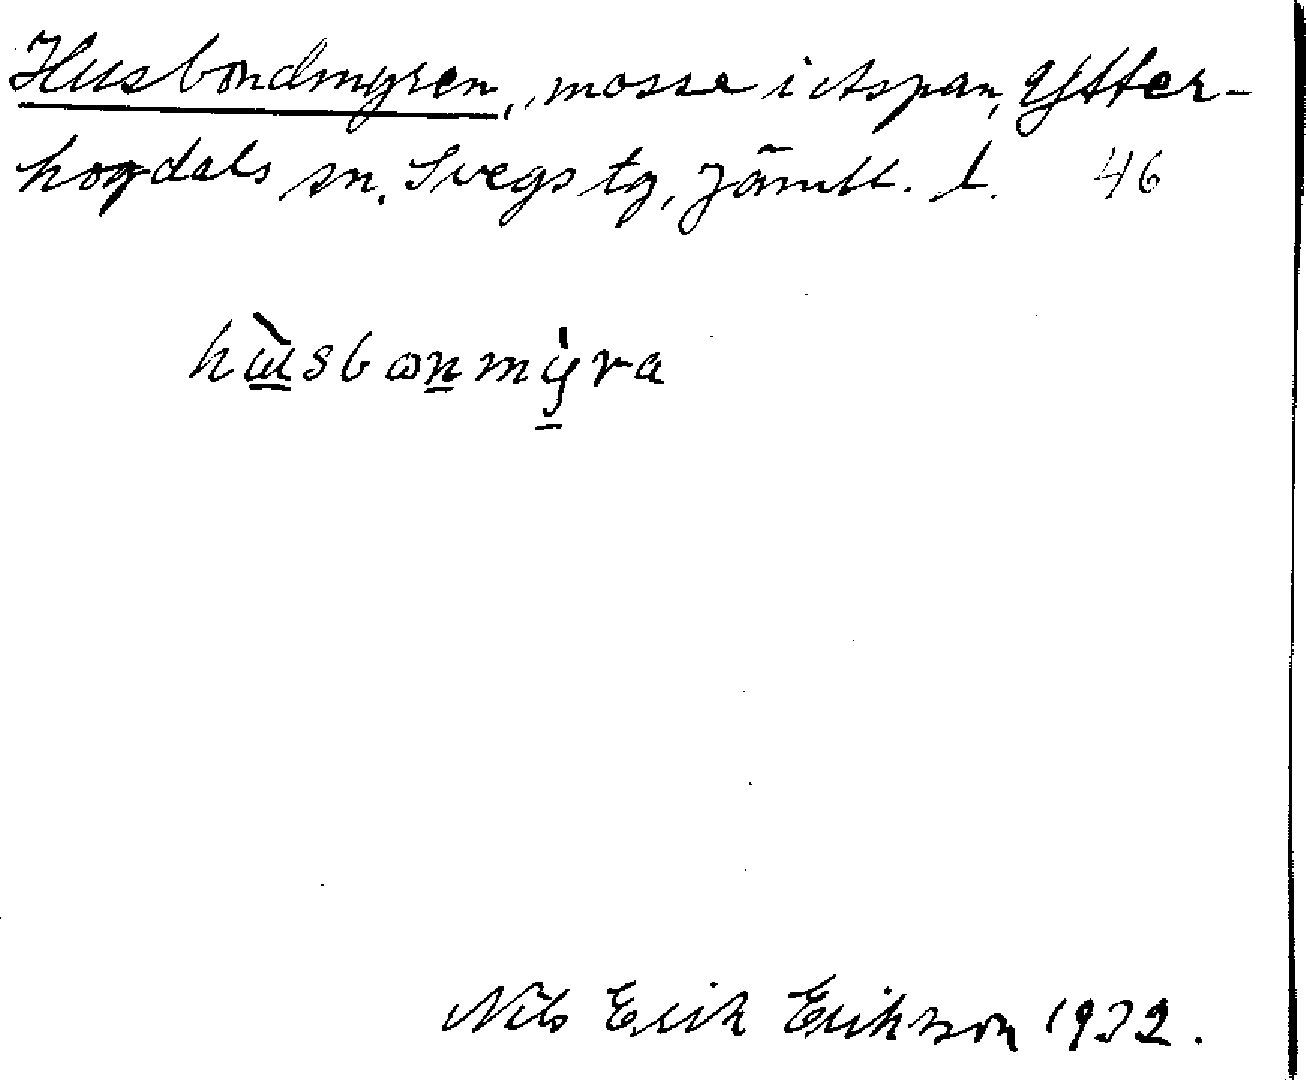 Husbondmyren, mosse i Aspan, Ytter-
hogdals sn. Svegs tg, Jämtl. l. 46
hùsbɷnmy̍ra
Nils Erik Erikson 1932.